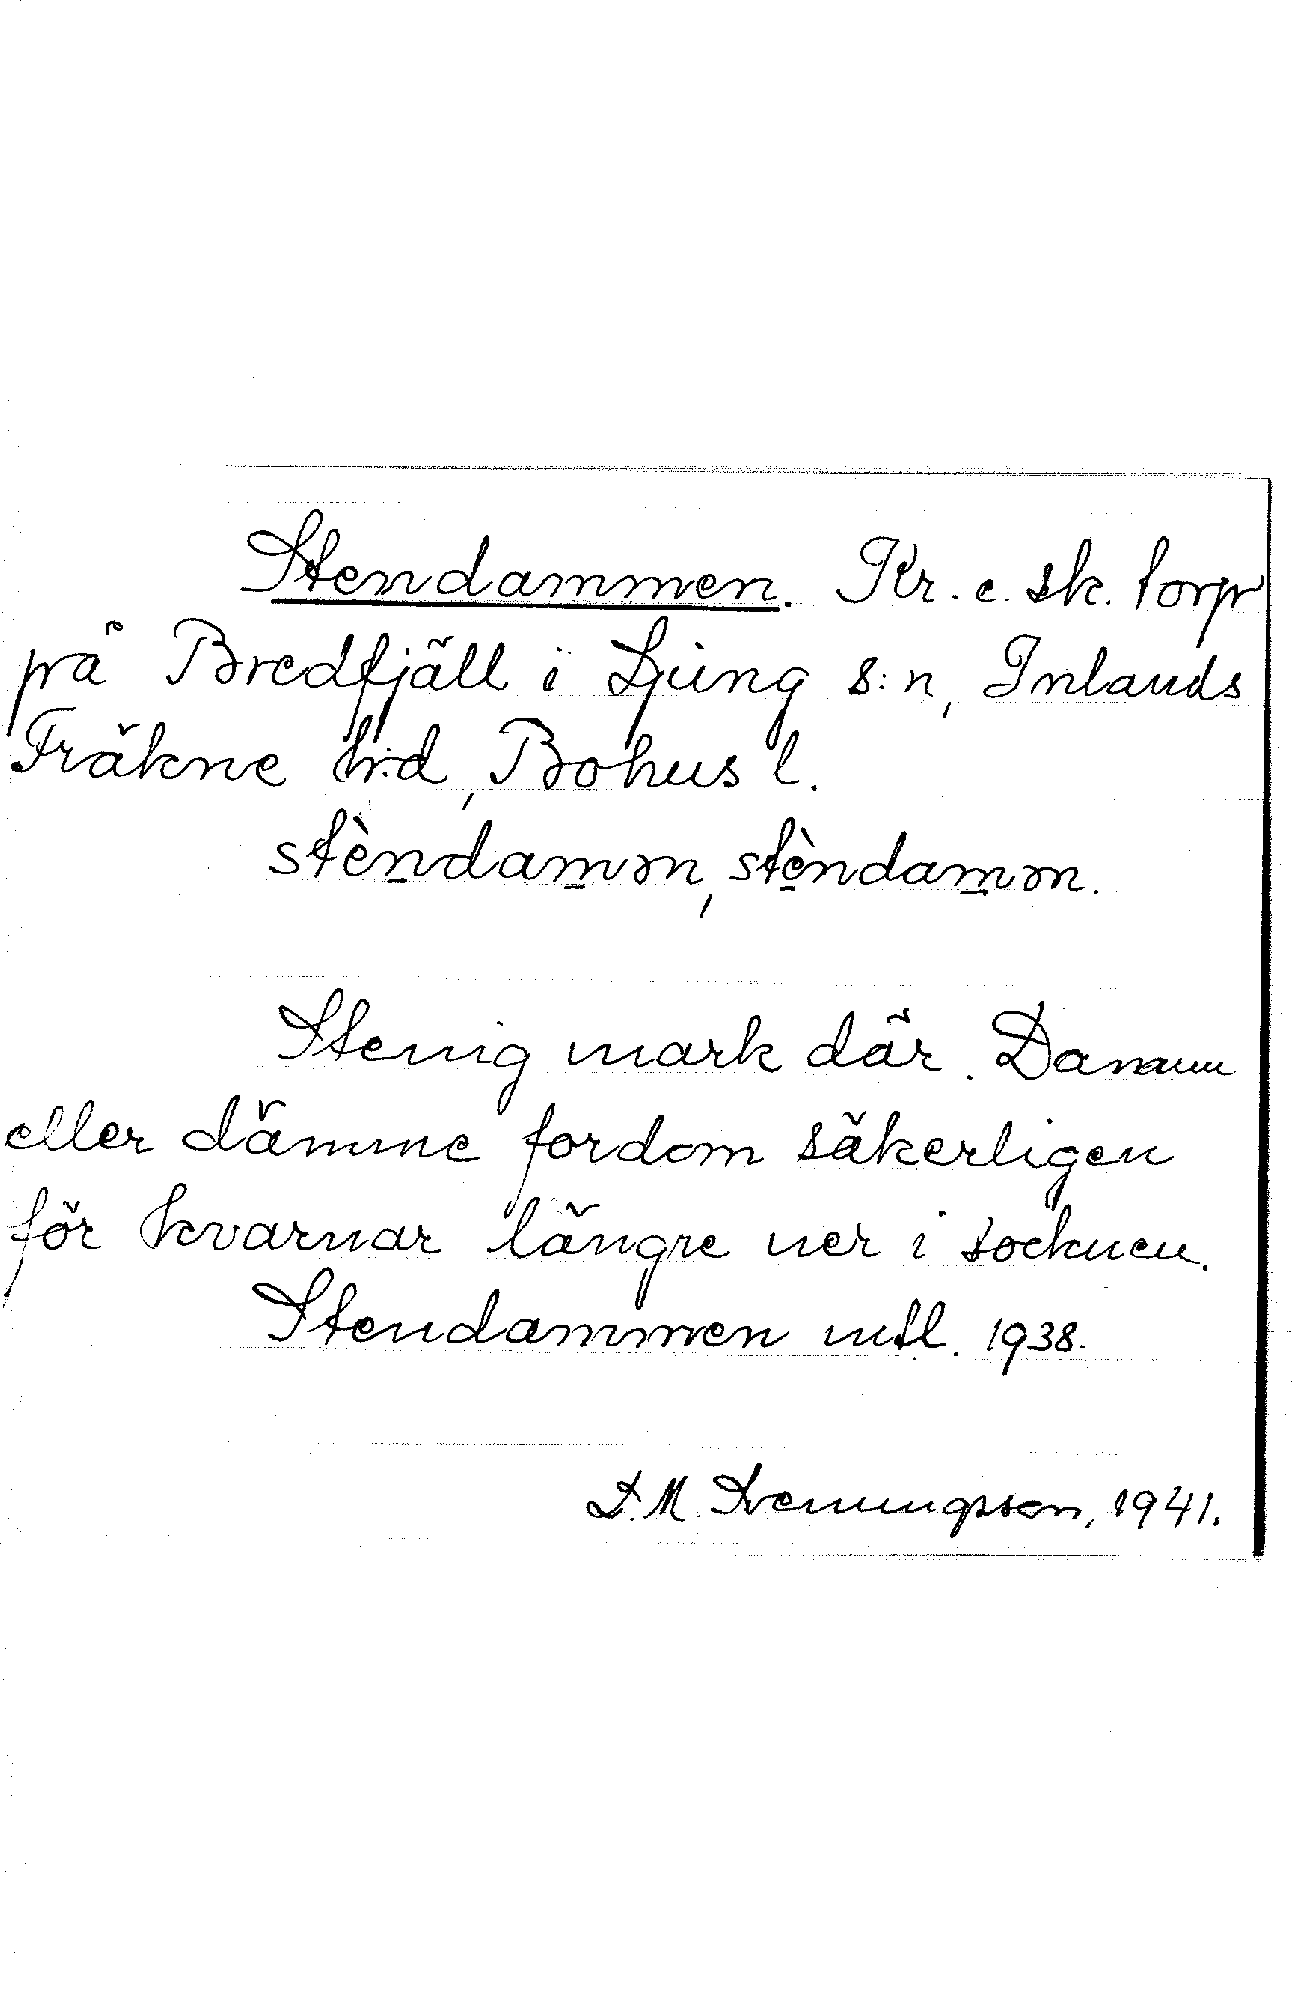 Stendammen. Kr. e. sk. torp
på Bredfjäll i Ljung s:n, Inlands
Fräkne hrd, Bohus l.
stèndamm, stèndamm.
Stenig mark där. Damm
eller dämme fordom säkerligen
för kvarnar längre ner i socknen.
Stendammen mtl. 1938.
M. 1941.